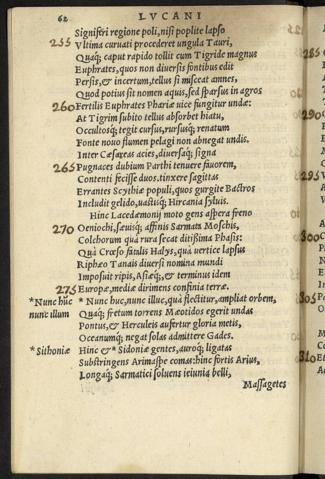 62 LVCANI
Signiferi regione poli, nisi poplite lapso
255 Vltima curuati procederet ungula Tauri,
Quaq; caput rapido tollit cum Tigride magnus
Euphrates, quos non diuersis fontibus edit
Persis, & incertum, tellus si misceat amnes,
Quod potius sit nomen aquis, sed sparsus in agros
260 Fertilis Euphrates Phariæ uice fungitur undæ:
At Tigrim subito tellus absorbet hiatu,
Occultosq; tegit cursus, rursusq; renatum
Fonte nouo flumen pelagi non abnegat undis.
Inter Cæsareas acies, diuersaq; signa
265 Pugnaces dubium Parthi tenuere fauorem,
Contenti fecisse duos. tinxere sagittas
Errantes Scythiæ populi, quos gurgite Bactros
Includit gelido, uastisq; Hircania syluis.
Hinc Lacedæmonij moto gens aspera freno
270 Oeniochi, sæuisq; affinis Sarmata Moschis,
Colchorum quà rura secat ditissima Phasis:
Quà Crœso fatalis Halys, quà uertice lapsus
Riphæo Tanais diuersi nomina mundi
Imposuit ripis, Asiæq;, & terminus idem
275 Europæ, mediæ dirimens confinia terræ.
*Nunc huc nunc illum
* Nunc huc, nunc illuc, quà flectitur, ampliat orbem,
Quàq; fretum torrens Mæotidos egerit undas
Pontus, & Herculeis aufertur gloria metis,
Oceanumq; negat solas admittere Gades.
*Sithoniæ Hinc &* Sidoniæ gentes, auroq; ligatas
Substringens Arimaspe comas: hinc fortis Arius,
Longaq; Sarmatici soluens ieiunia belli,
Massagetes
285
290
295
300
305
310